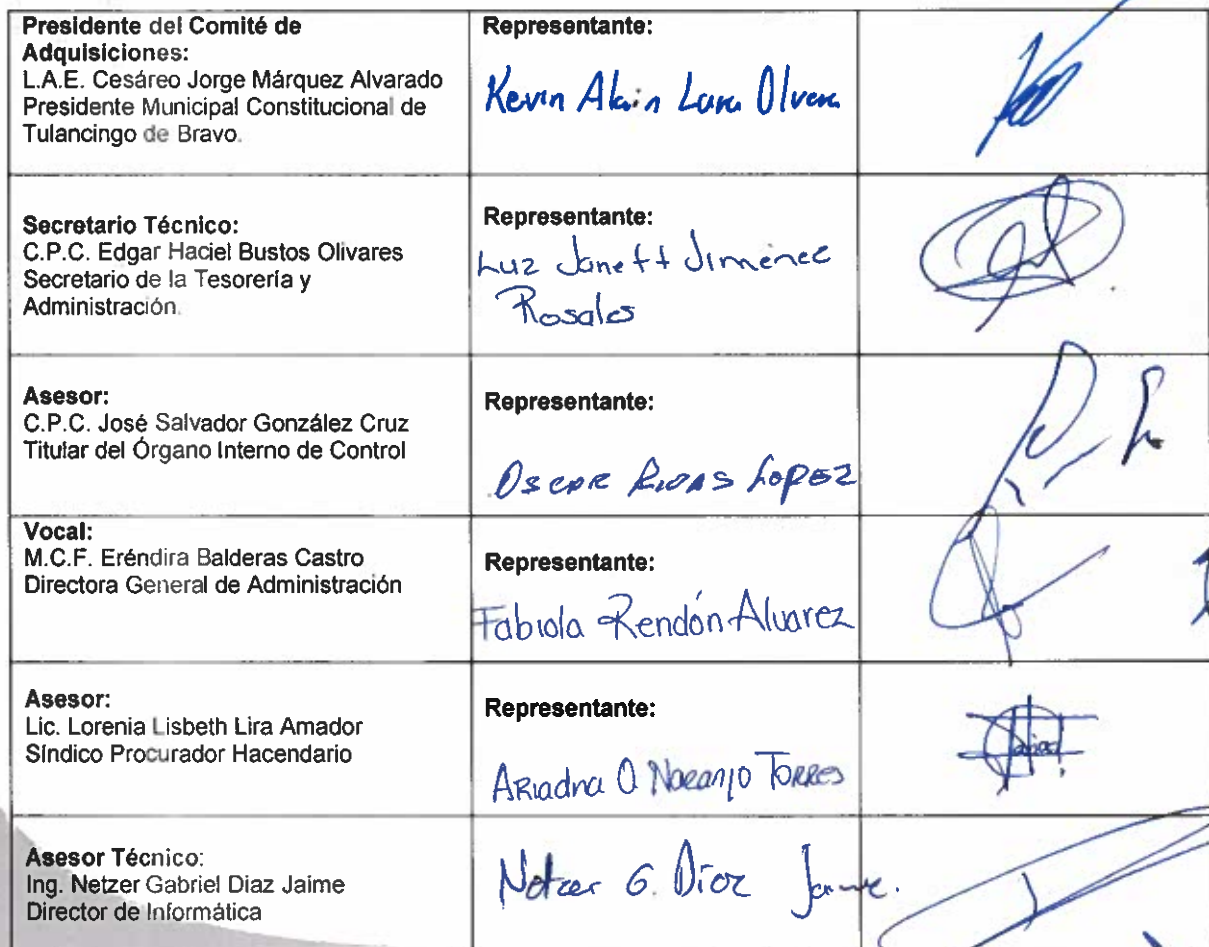 Presidente del Comité de
Adquisiciones:
L.A.E. Cesáreo Jorge Márquez Alvarado
Presidente Municipal Constitucional de
Tulancingo de Bravo.
Representante:
Kevin Alain Lara Olvera
Secretario Técnico:
C.P.C. Edgar Haciel Bustos Olivares
Secretario de la Tesorería y
Administración.
Representante:
Luz Janett Jiménez
Rosales
Asesor:
C.P.C. José Salvador González Cruz
Titular del Órgano Interno de Control
Representante:
OSCAR RIVAS LOPEZ
Vocal:
M.C.F. Eréndira Balderas Castro
Directora General de Administración
Representante:
Fabiola Rendón Alvarez
Asesor:
Lic. Lorenia Lisbeth Lira Amador
Síndico Procurador Hacendario
Representante:
ARiadna O NaRanjo TORRES
Asesor Técnico:
Ing. Netzer Gabriel Diaz Jaime
Director de Informática
Netzer G. Díaz Jaime.